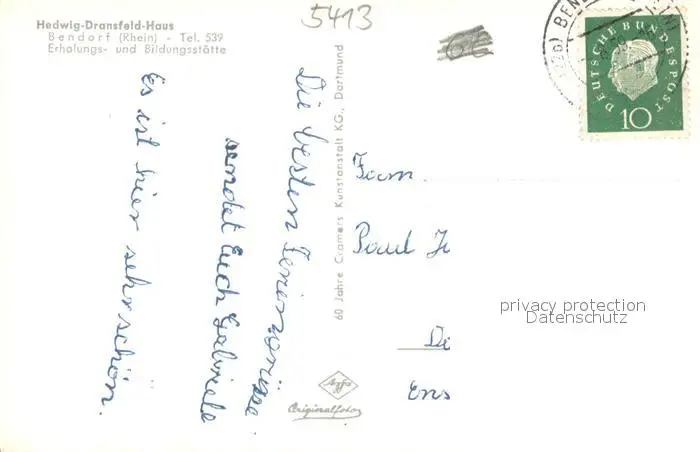 Hedwig-Dransfeld-Haus
Bendorf (Rhein) - Tel. 539
Erholungs- und Bildungsstätte
5413
DEUTSCHE BUNDESPOST
10
Die besten Feriengrüsse
sendet Euch Gabriele
Es ist hier sehr schön.
60 Jahre Cramers Kunstanstalt KG., Dortmund
Fam.
Paul
Ens
privacy protection
Datenschutz
Agfa
Originalfoto